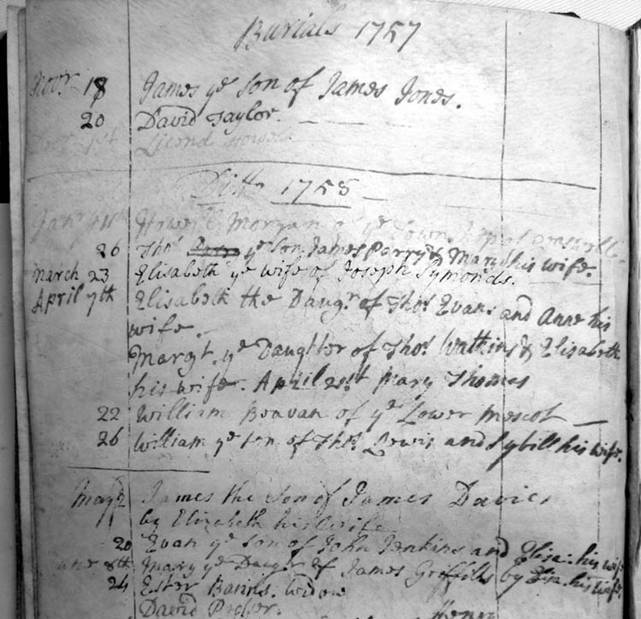 Burials 1757
Novr 18 James ye son of James Jones.
20 David Taylor.
Ditto 1758
Howell Morgan of ye Town
26 Thos ye son James Parry & Mary his wife.
March 23 Elisabeth ye wife of Joseph Symonds.
April 7th Elisabeth the Daugr of Thos Evans and Anne his
wife.
Margt. ye Daughter of Thos Watkins & Elisabeth
his wife. April 21st Mary Thomas
22 William Beavan of ye Lower
26 William ye son of Thos Lewis and Sybill his wife.
May James the Son of James Davies
by Elizabeth his wife
20 Evan ye Son of John Jenkins and Eliza: his wife
8th Mary ye Daugr of James Griffiths by Eliz. his wife.
24 Ester Banns. widow
David Prosser.
Henry